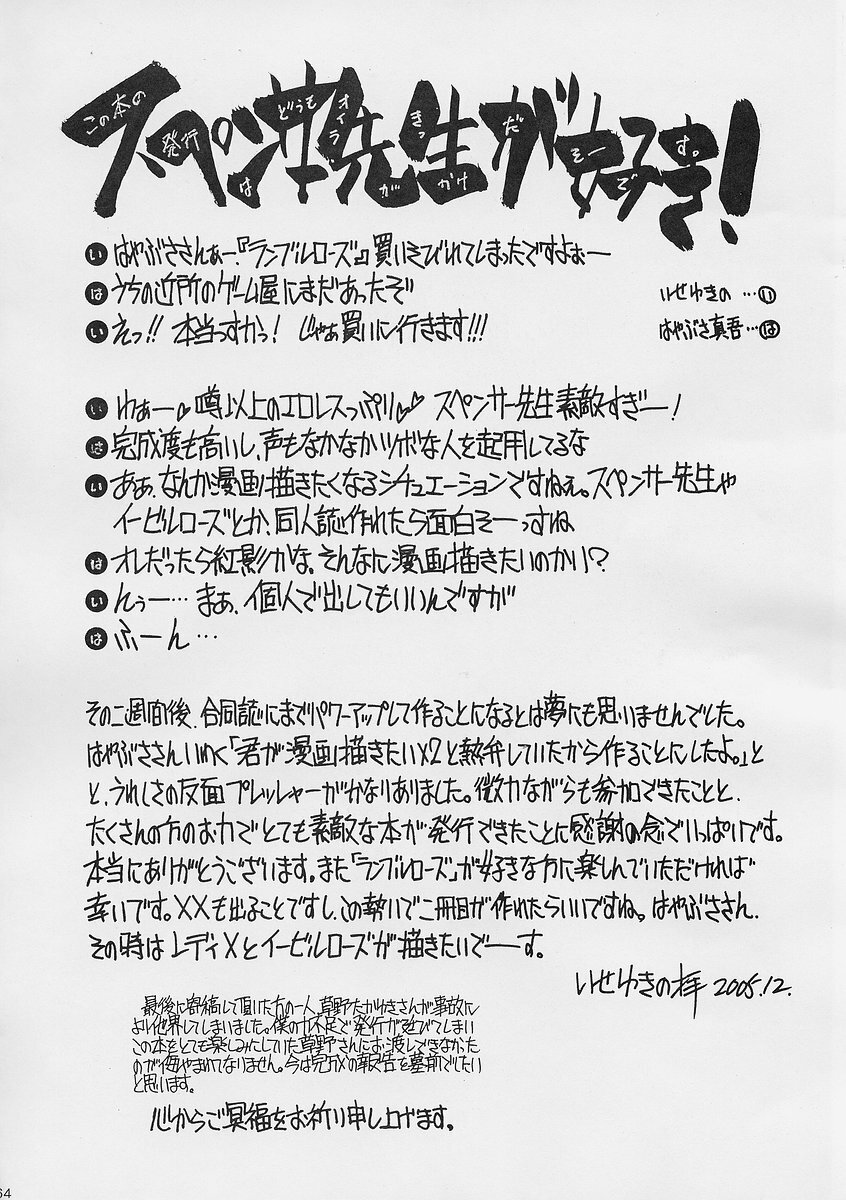 スペンサー先生が好き!
この本の発行はどうもオイラがきっかけだそーです。
い はやぶささんぁー、『ランブルローズ』買いそびれてしまったですよぉー
は うちの近所のゲーム屋にまだあったぞ
い えっ!! 本当っすかっ! じゃぁ買いに行きます!!!
いせゆきの …い
はやぶさ真吾…は
い わぁー♡噂以上のエロレスっぷり♡♡ スペンサー先生素敵すぎー!
は 完成度も高いし、声もなかなかツボな人を起用してるな
い あぁ、なんか漫画描きたくなるシチュエーションですねぇ。スペンサー先生や
イービルローズとか、同人誌作れたら面白そーっすね
は オレだったら紅影かな。そんなに漫画描きたいのかい?
い んぅー… まぁ、個人で出してもいいんですが
は ふーん…
その二週間後、合同誌にまでパワーアップして作ることになるとは夢にも思いませんでした。
はやぶささんいわく「君が漫画描きたい×2と熱弁していたから作ることにしたよ。」と
と、うれしさの反面プレッシャーがかなりありました。微力ながらも参加できたことと、
たくさんの方のお力でとても素敵な本が発行できたことに感謝の念でいっぱいです。
本当にありがとうございます。また「ランブルローズ」が好きな方に楽しんでいただければ
幸いです。XXも出ることですし、この勢いで二冊目が作れたらいいですね。はやぶささん、
その時はレディXとイービルローズが描きたいでーす。
いせゆきの拝 2005.12.
最後に寄稿して頂いた方の一人、草野たかゆきさんが事故に
より他界してしまいました。僕の力不足で発行が延びてしまい
この本をとても楽しみにしていた草野さんにお渡しできなかった
のが悔やまれてなりません。今は完成の報告を墓前でしたい
と思います。
心からご冥福をお祈り申し上げます。
64